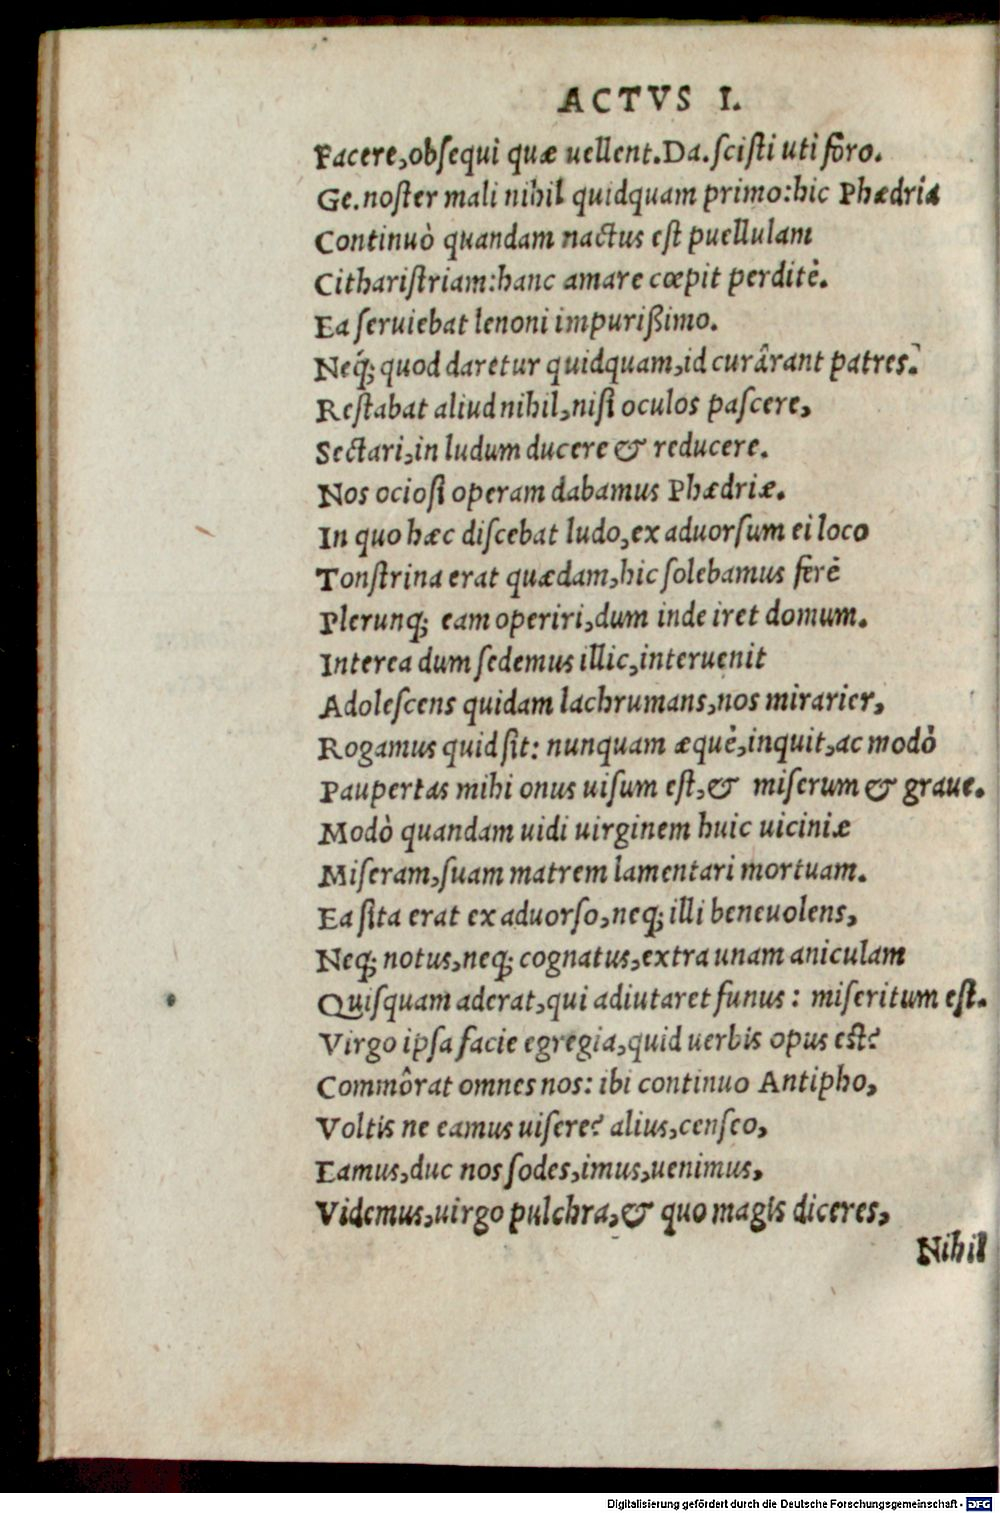 ACTVS I.
Facere, obſequi quæ uellent. Da. ſciſti uti foro.
Ge. noſter mali nihil quidquam primo: hic Phædria
Continuò quandam nactus eſt puellulam
Cithariſtriam: hanc amare cœpit perditè.
Ea ſeruiebat lenoni impurißimo.
Neq́; quod daretur quidquam, id curârant patres.
Reſtabat aliud nihil, niſi oculos paſcere,
Sectari, in ludum ducere & reducere.
Nos ocioſi operam dabamus Phædriæ.
In quo hæc diſcebat ludo, ex aduorſum ei loco
Tonſtrina erat quædam, hic ſolebamus ferè
Plerunq; eam operiri, dum inde iret domum.
Interea dum ſedemus illic, interuenit
Adoleſcens quidam lachrumans, nos mirarier,
Rogamus quid ſit: nunquam æquè, inquit, ac modò
Paupertas mihi onus uiſum eſt, & miſerum & graue.
Modò quandam uidi uirginem huic uiciniæ
Miſeram, ſuam matrem lamentari mortuam.
Ea ſita erat ex aduorſo, neq; illi beneuolens,
Neq; notus, neq; cognatus, extra unam aniculam
Quiſquam aderat, qui adiutaret funus: miſeritum eſt.
Virgo ipſa facie egregia, quid uerbis opus eſt?
Commôrat omnes nos: ibi continuo Antipho,
Voltis ne eamus uiſere? alius, cenſeo,
Eamus, duc nos ſodes, imus, uenimus,
Videmus, uirgo pulchra, & quo magis diceres,
Nihil
Digitalisierung gefördert durch die Deutsche Forschungsgemeinschaft - DFG